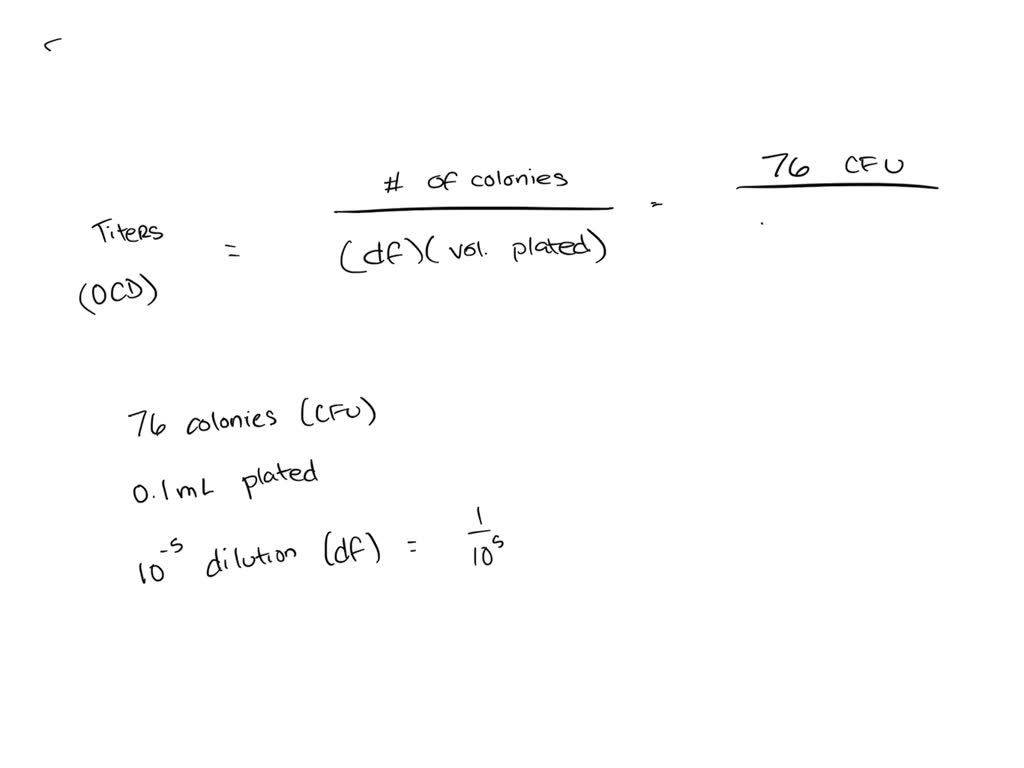 Titers (OCD) = # of colonies / (df)(vol. plated) = 76 CFU
76 colonies (CFU)
0.1mL plated
10⁻⁵ dilution (df) = 1/10⁵